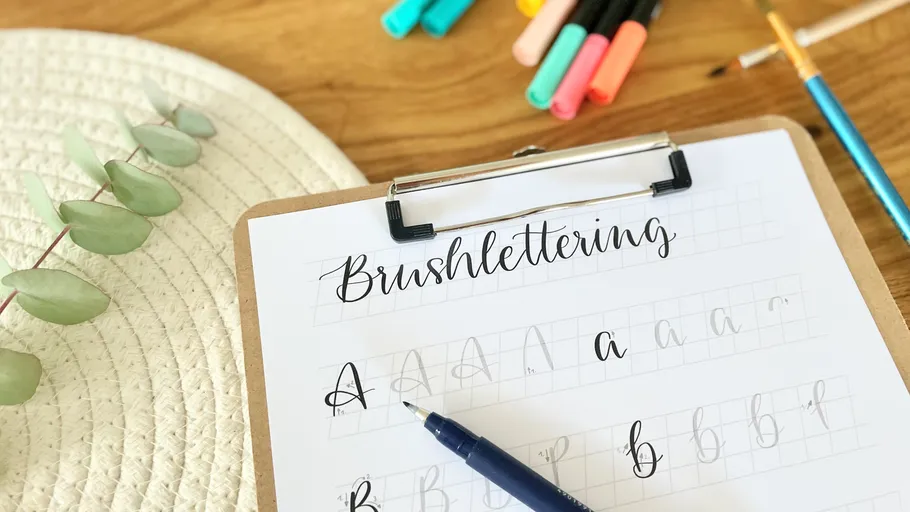 Brushlettering
A A A A a a a a
B B B B b b b b